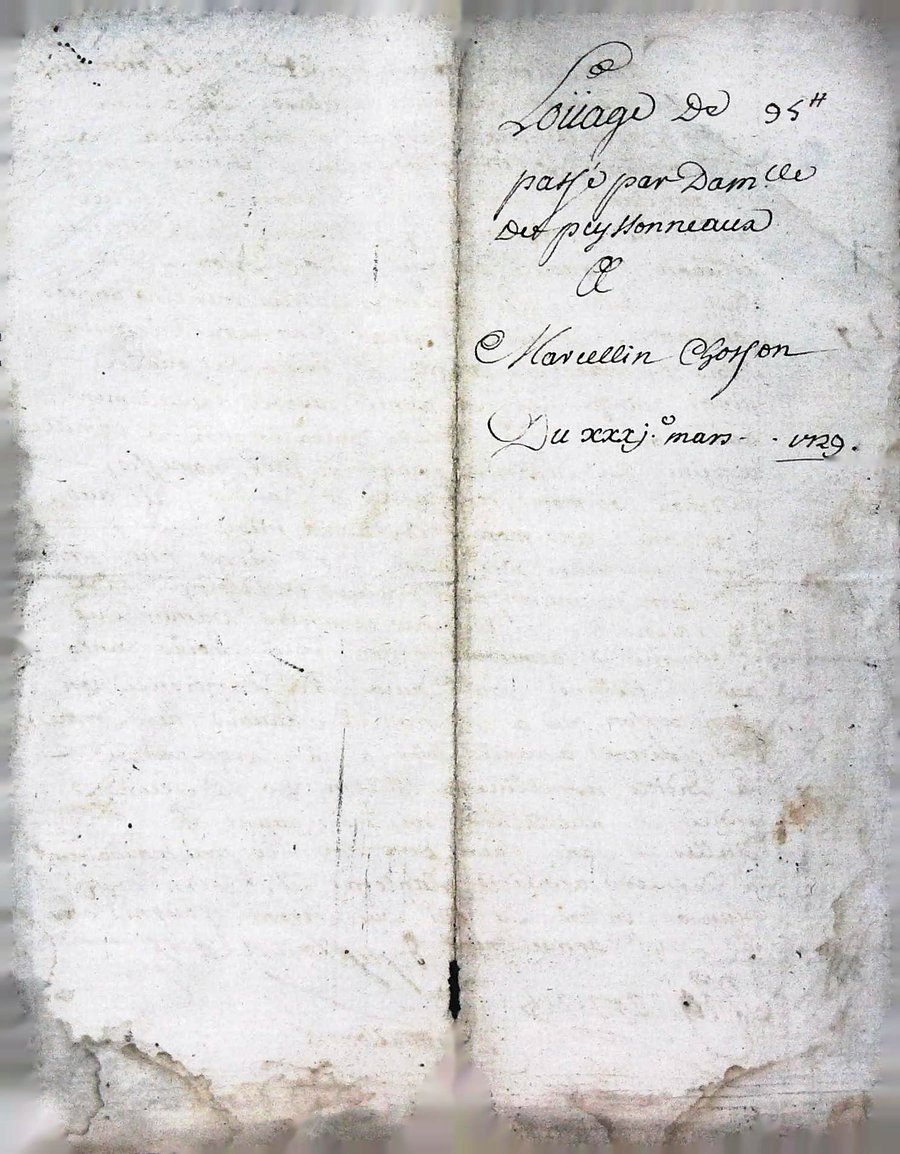 Loüage De 95ᴴ
passé par Damᶜˡˡᵉ
des peyssonneaux
A
Marcellin Chosson
Du xxxj.ᵉ mars - . 1729.